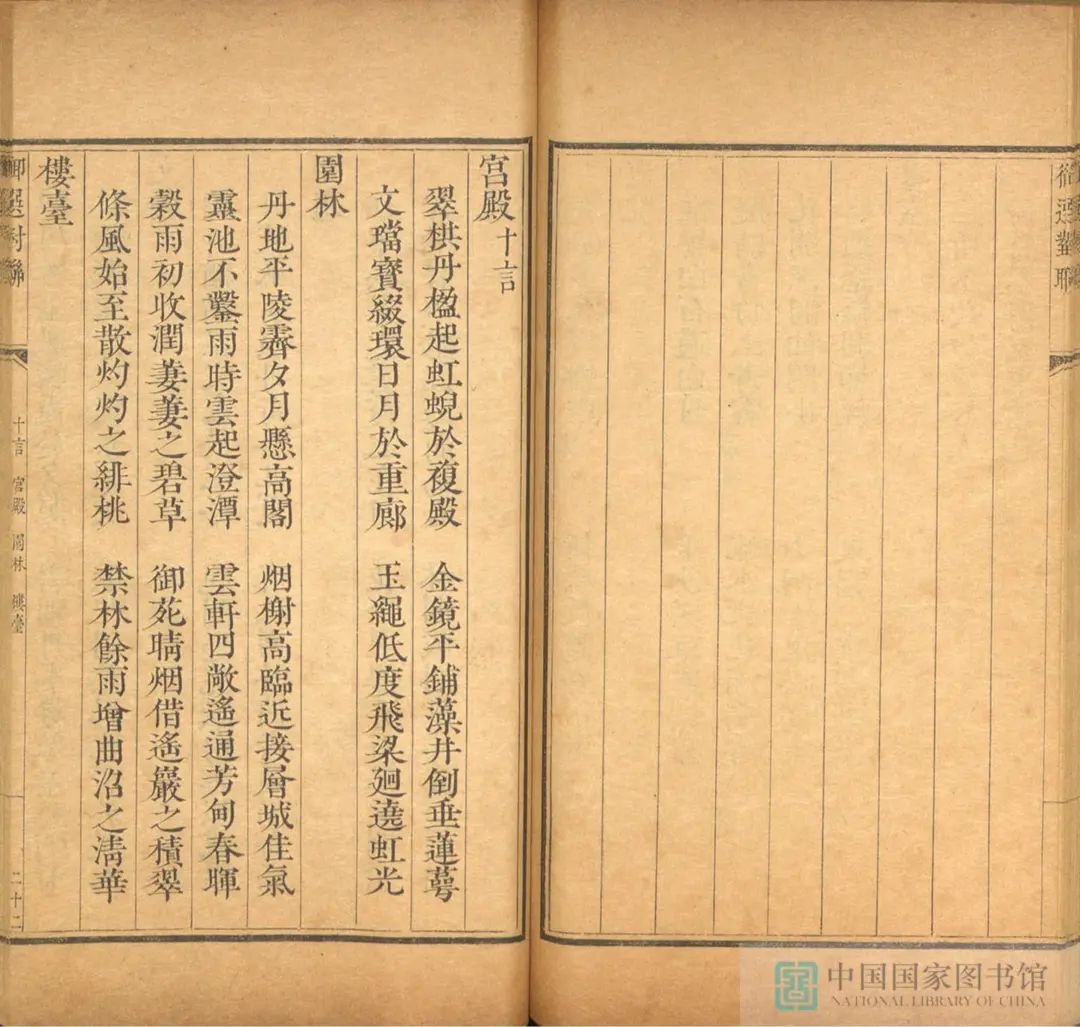 御選對聯
宮殿十言
翠栱丹楹起虹蜺於複殿　金鏡平鋪藻井倒垂蓮萼
文璫寶綴環日月於重廊　玉繩低度飛梁廻遶虹光
園林
丹地平陵霽夕月懸高閣　烟榭高臨近接層城佳氣
靈池不鑿雨時雲起澄潭　雲軒四敞遙通芳甸春暉
穀雨初收潤萋萋之碧草　御苑晴烟借遙巖之積翠
條風始至散灼灼之緋桃　禁林餘雨增曲沼之淸華
樓臺
御選對聯
十言　宮殿　園林　樓臺
二十二
中国国家图书馆
NATIONAL LIBRARY OF CHINA